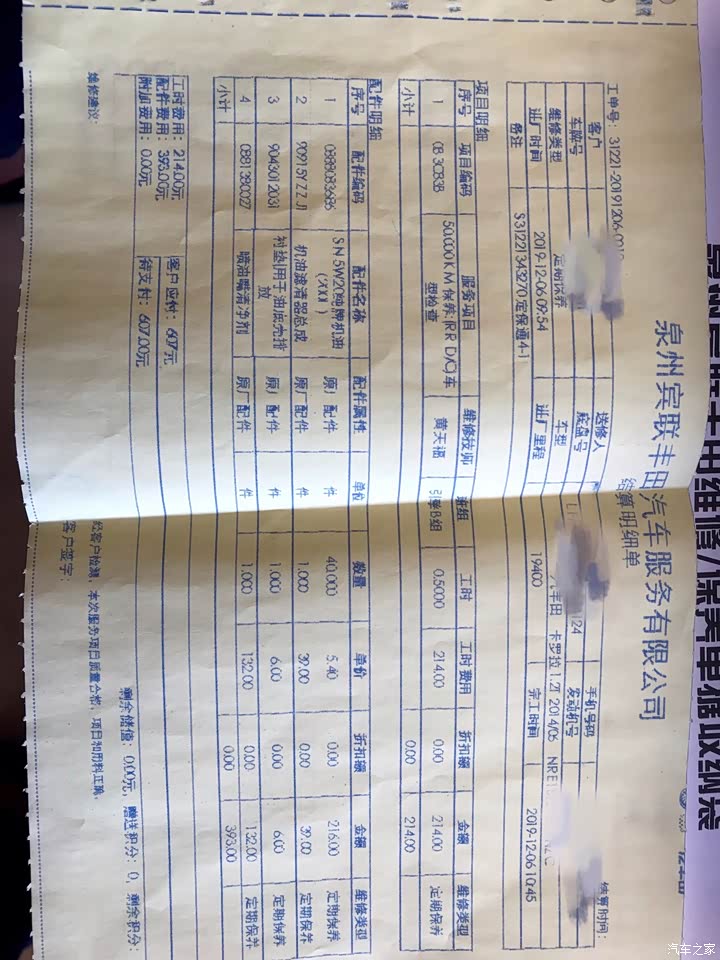 维修/保养单据收纳袋
泉州宾联丰田汽车服务有限公司
结算明细单
工单号: 31221-20191206
结算时间:
客户 送修人 手机号码
车牌号 底盘号 124 发动机号
维修类型 定期保养 车型 汽丰田 卡罗拉 1.2T 2014/06 NRE1
进厂时间 2019-12-06 09:54 进厂里程 19400 完工时间 2019-12-06 10:45
备注 S31221343270定保通4-1
项目明细
序号 项目编码 服务项目 维修技师 班组 工时 工时费用 折扣额 金额 维修类型
1 50,000KM保养;(RR D/C)车型检查 黄天福 引擎B组 0.5000 214.00 0.00 214.00 定期保养
小计 0.00 214.00
配件明细
序号 配件编码 配件名称 配件属性 单位 数量 单价 折扣额 金额 维修类型
1 0888083686 SN 5W20纯牌机油 原厂配件 件 40.000 5.40 0.00 216.00 定期保养
2 90915YZZJ1 机油滤清器总成 原厂配件 件 1.000 39.00 0.00 39.00 定期保养
3 9043012031 衬垫(用于油底壳排放 原厂配件 件 1.000 6.00 0.00 6.00 定期保养
4 0881380027 喷油嘴清净剂 原厂配件 件 1.000 132.00 0.00 132.00 定期保养
小计 0.00 393.00
工时费用: 214.00元 客户应付: 607元
配件费用: 393.00元 待支付: 607.00元
附加费用: 0.00元
剩余储值: 0.00元, 赠送积分: 0, 剩余积分:
维修建议:
经客户检测, 本次服务项目质量合格, 项目和用料正确,
客户签字:
汽车之家